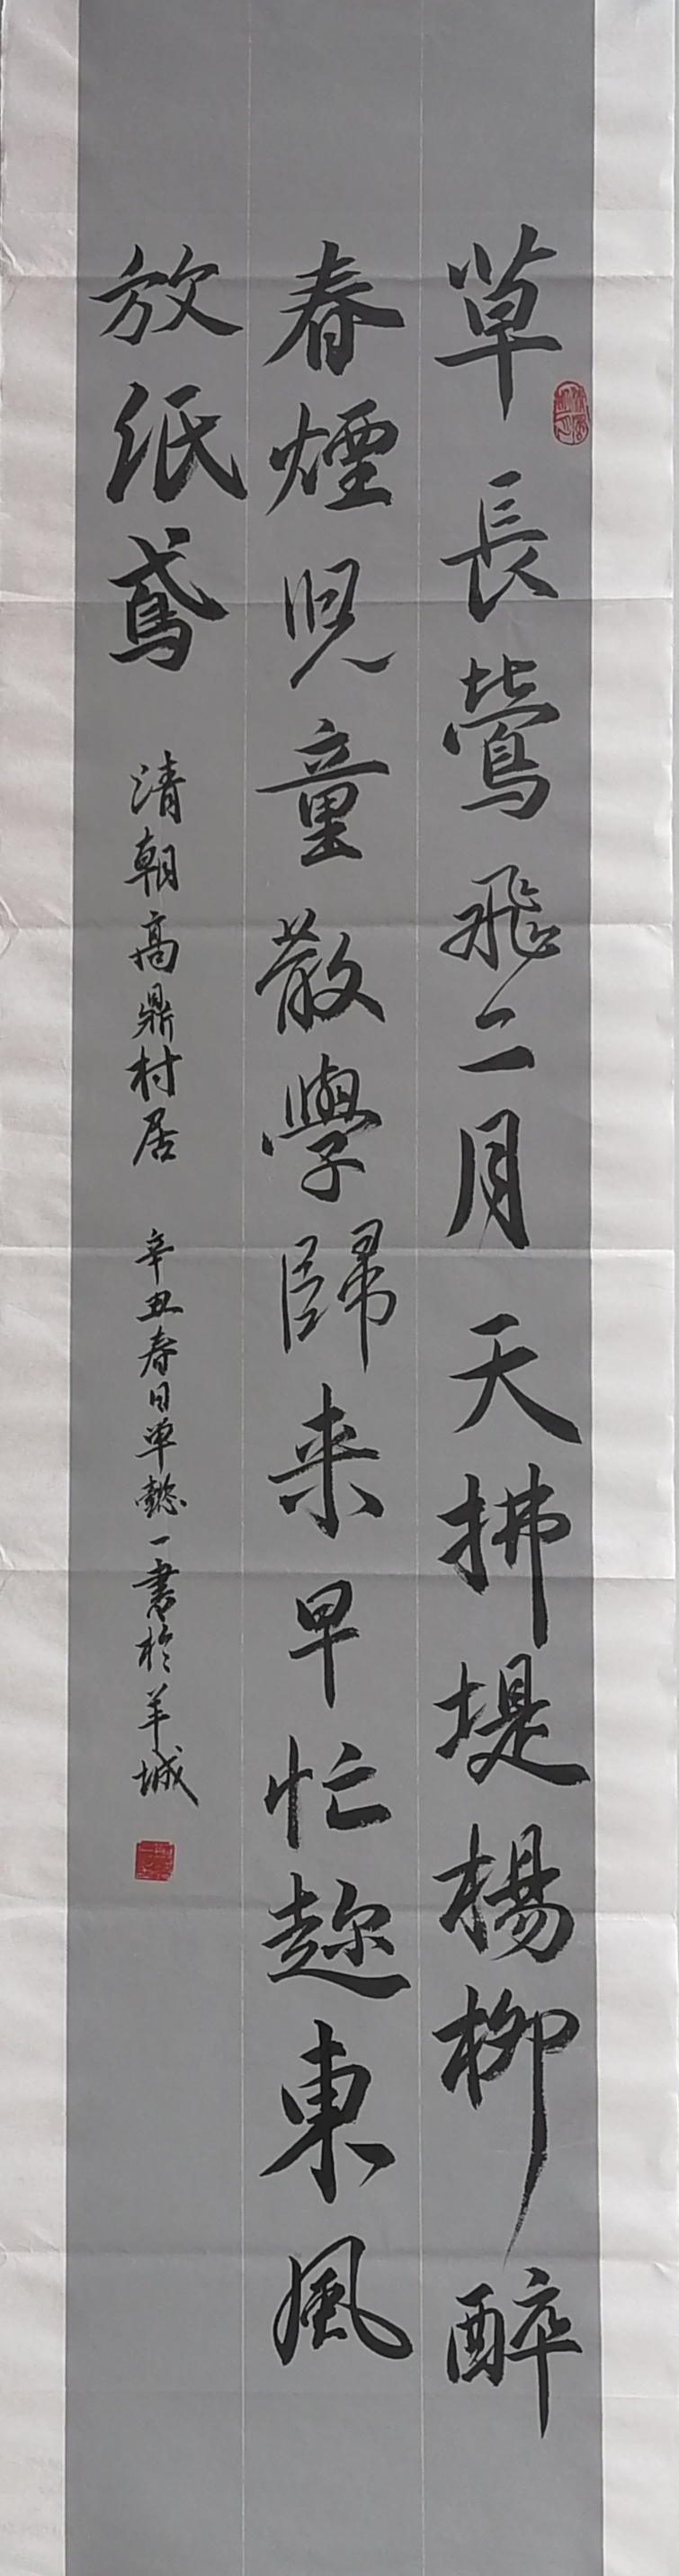 草長鶯飛二月天拂堤楊柳醉
春煙兒童散學歸来早忙趂東風
放纸鳶
清朝高鼎村居
辛丑春日单懿一書於羊城